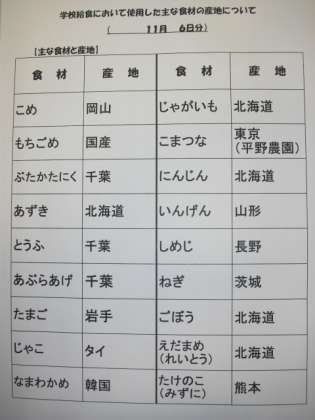 学校給食において使用した主な食材の産地について
（　　　11月　6日分）
【主な食材と産地】
食　材　産　地　食　材　産　地
こめ　岡山　じゃがいも　北海道
もちごめ　国産　こまつな　東京（平野農園）
ぶたかたにく　千葉　にんじん　北海道
あずき　北海道　いんげん　山形
とうふ　千葉　しめじ　長野
あぶらあげ　千葉　ねぎ　茨城
たまご　岩手　ごぼう　北海道
じゃこ　タイ　えだまめ（れいとう）　北海道
なまわかめ　韓国　たけのこ（みずに）　熊本